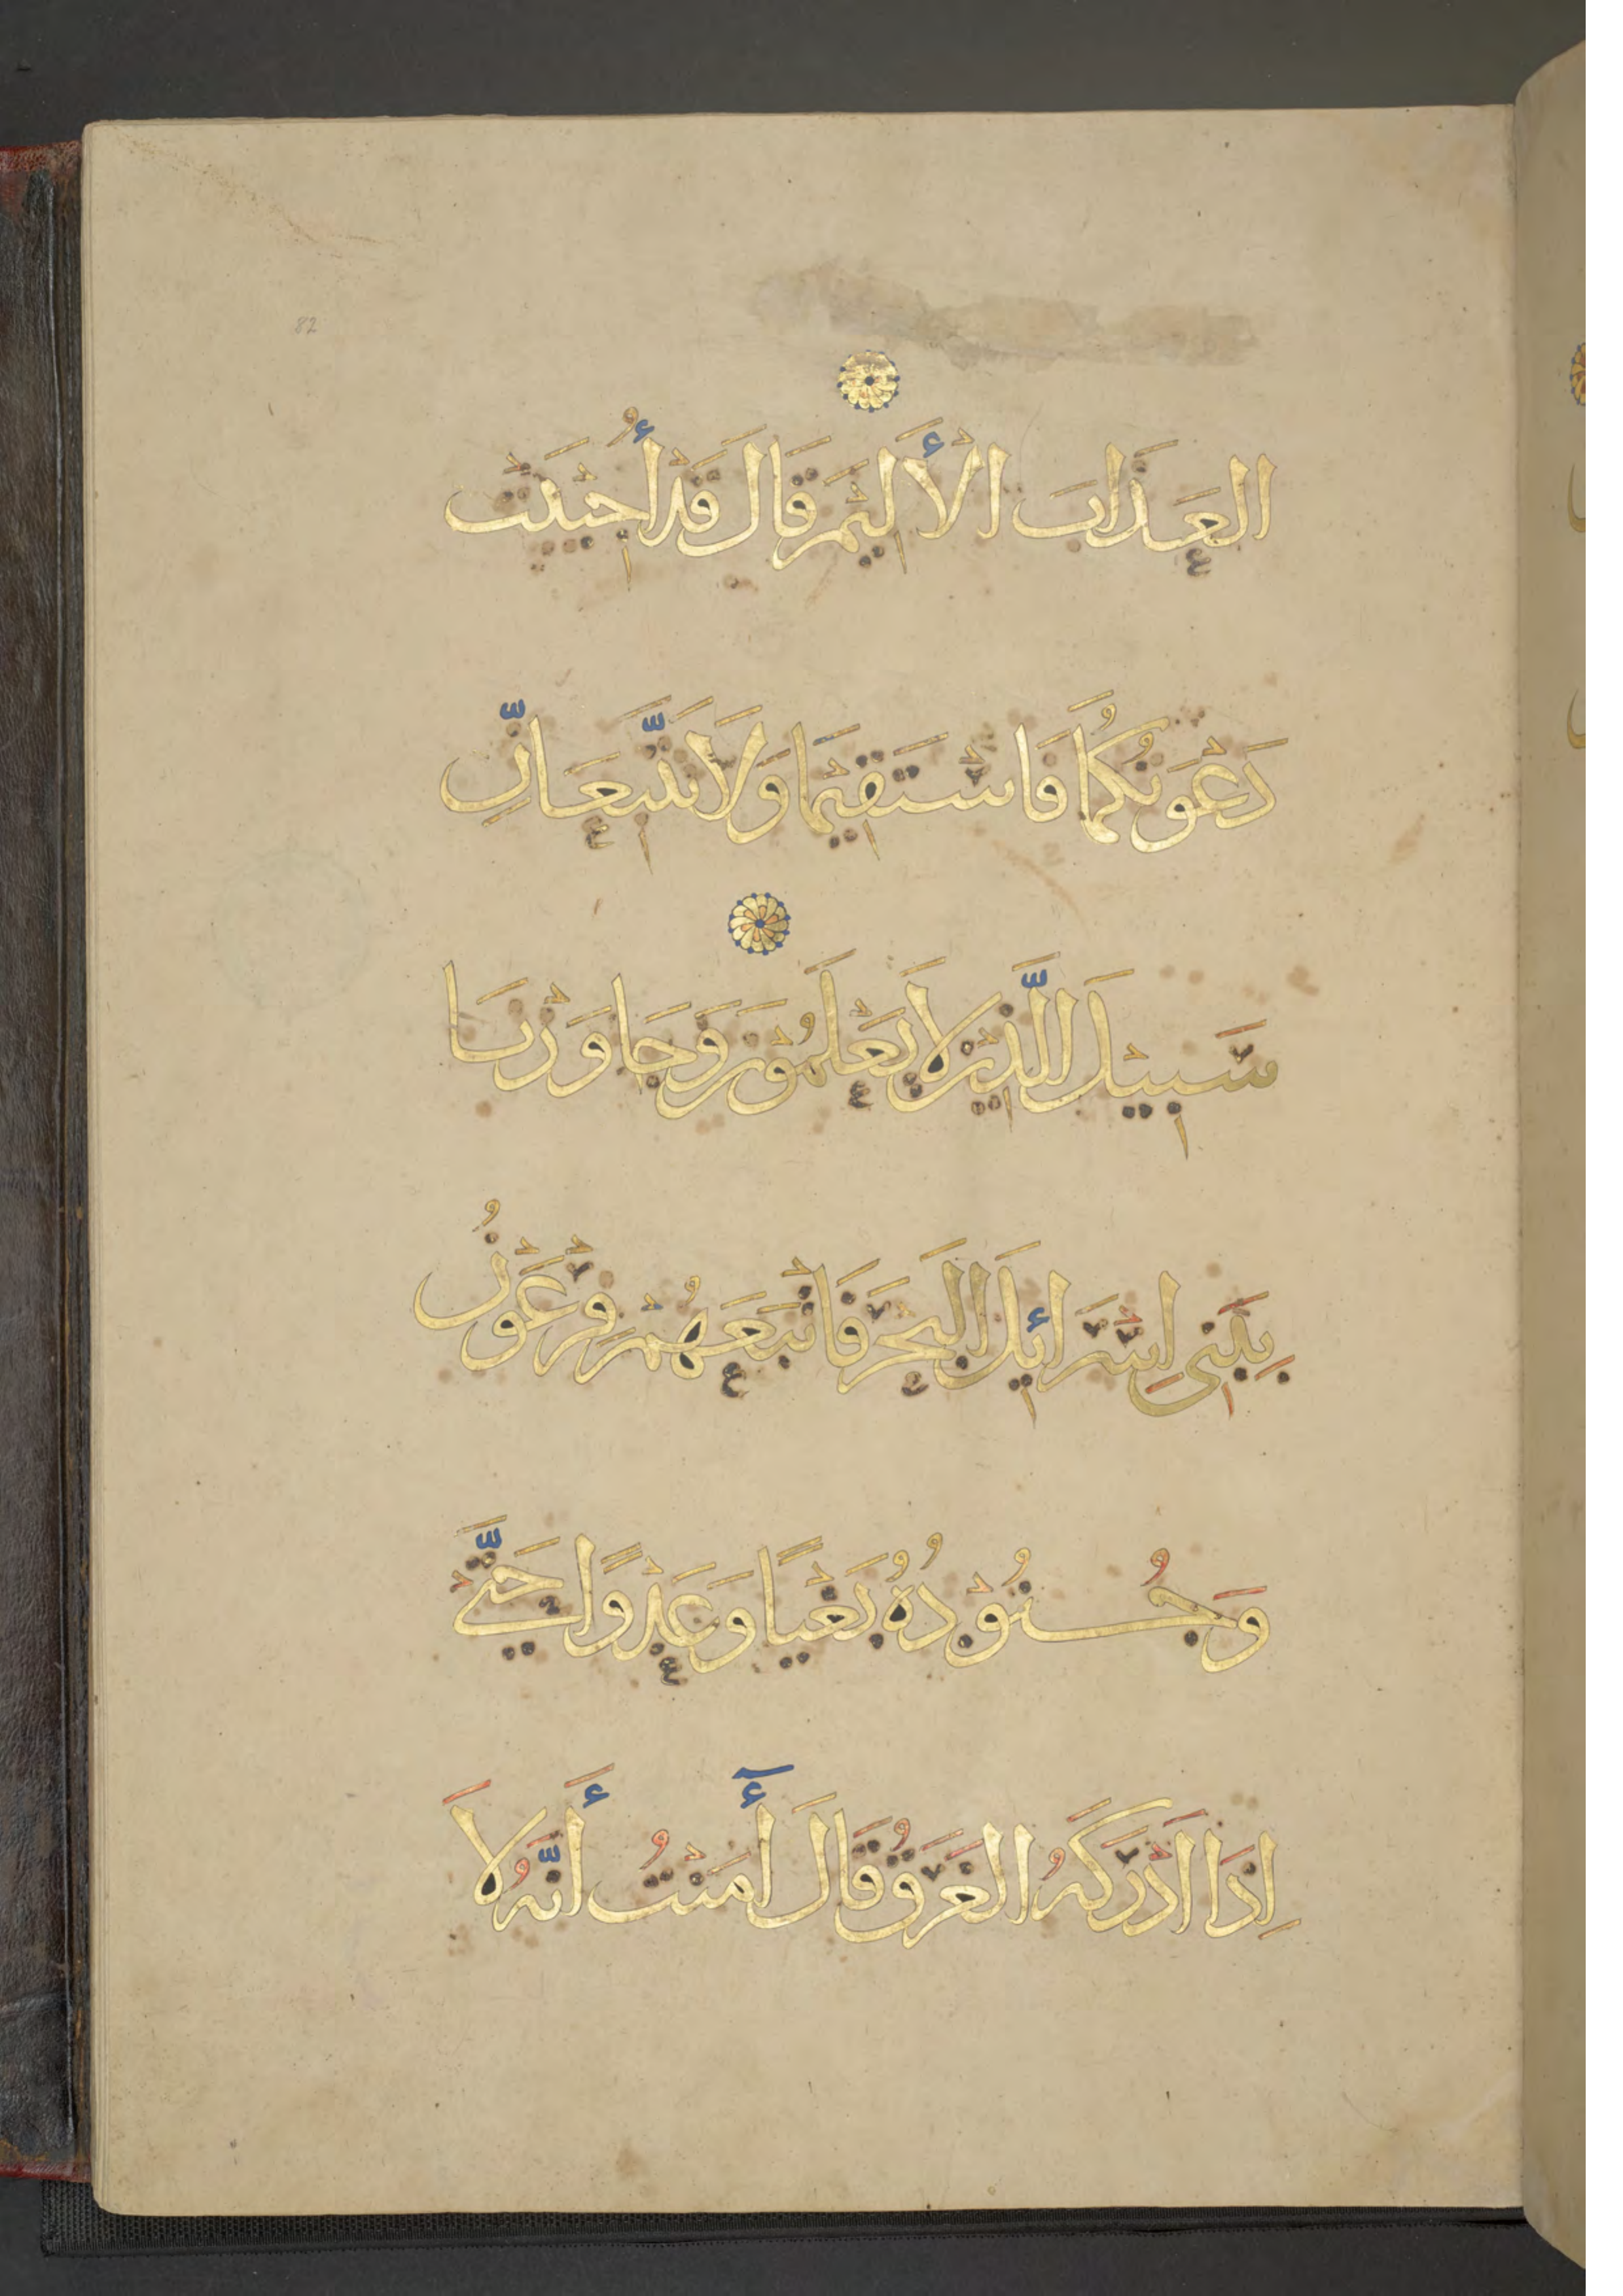 82
العَذَابَ الْأَلِيْمَ قَالَ قَدْ أُجِيْبَتْ
دَعْوَتُكُمَا فَاسْتَقِيْمَا وَلَا تَتَّبِعَانِّ
سَبِيْلَ الَّذِيْنَ لَا يَعْلَمُوْنَ وَجَاوَزْنَا
بِبَنِى اِسْرَائِيلَ الْبَحْرَ فَاَتْبَعَهُمْ فِرْعَوْنُ
وَجُنُوْدُهُ بَغْيًا وَعَدْوًا حَتَّىْ
اِذَا اَدْرَكَهُ الغَرَقُ قَالَ أٓمَنْتُ أَنَّهُ لَا